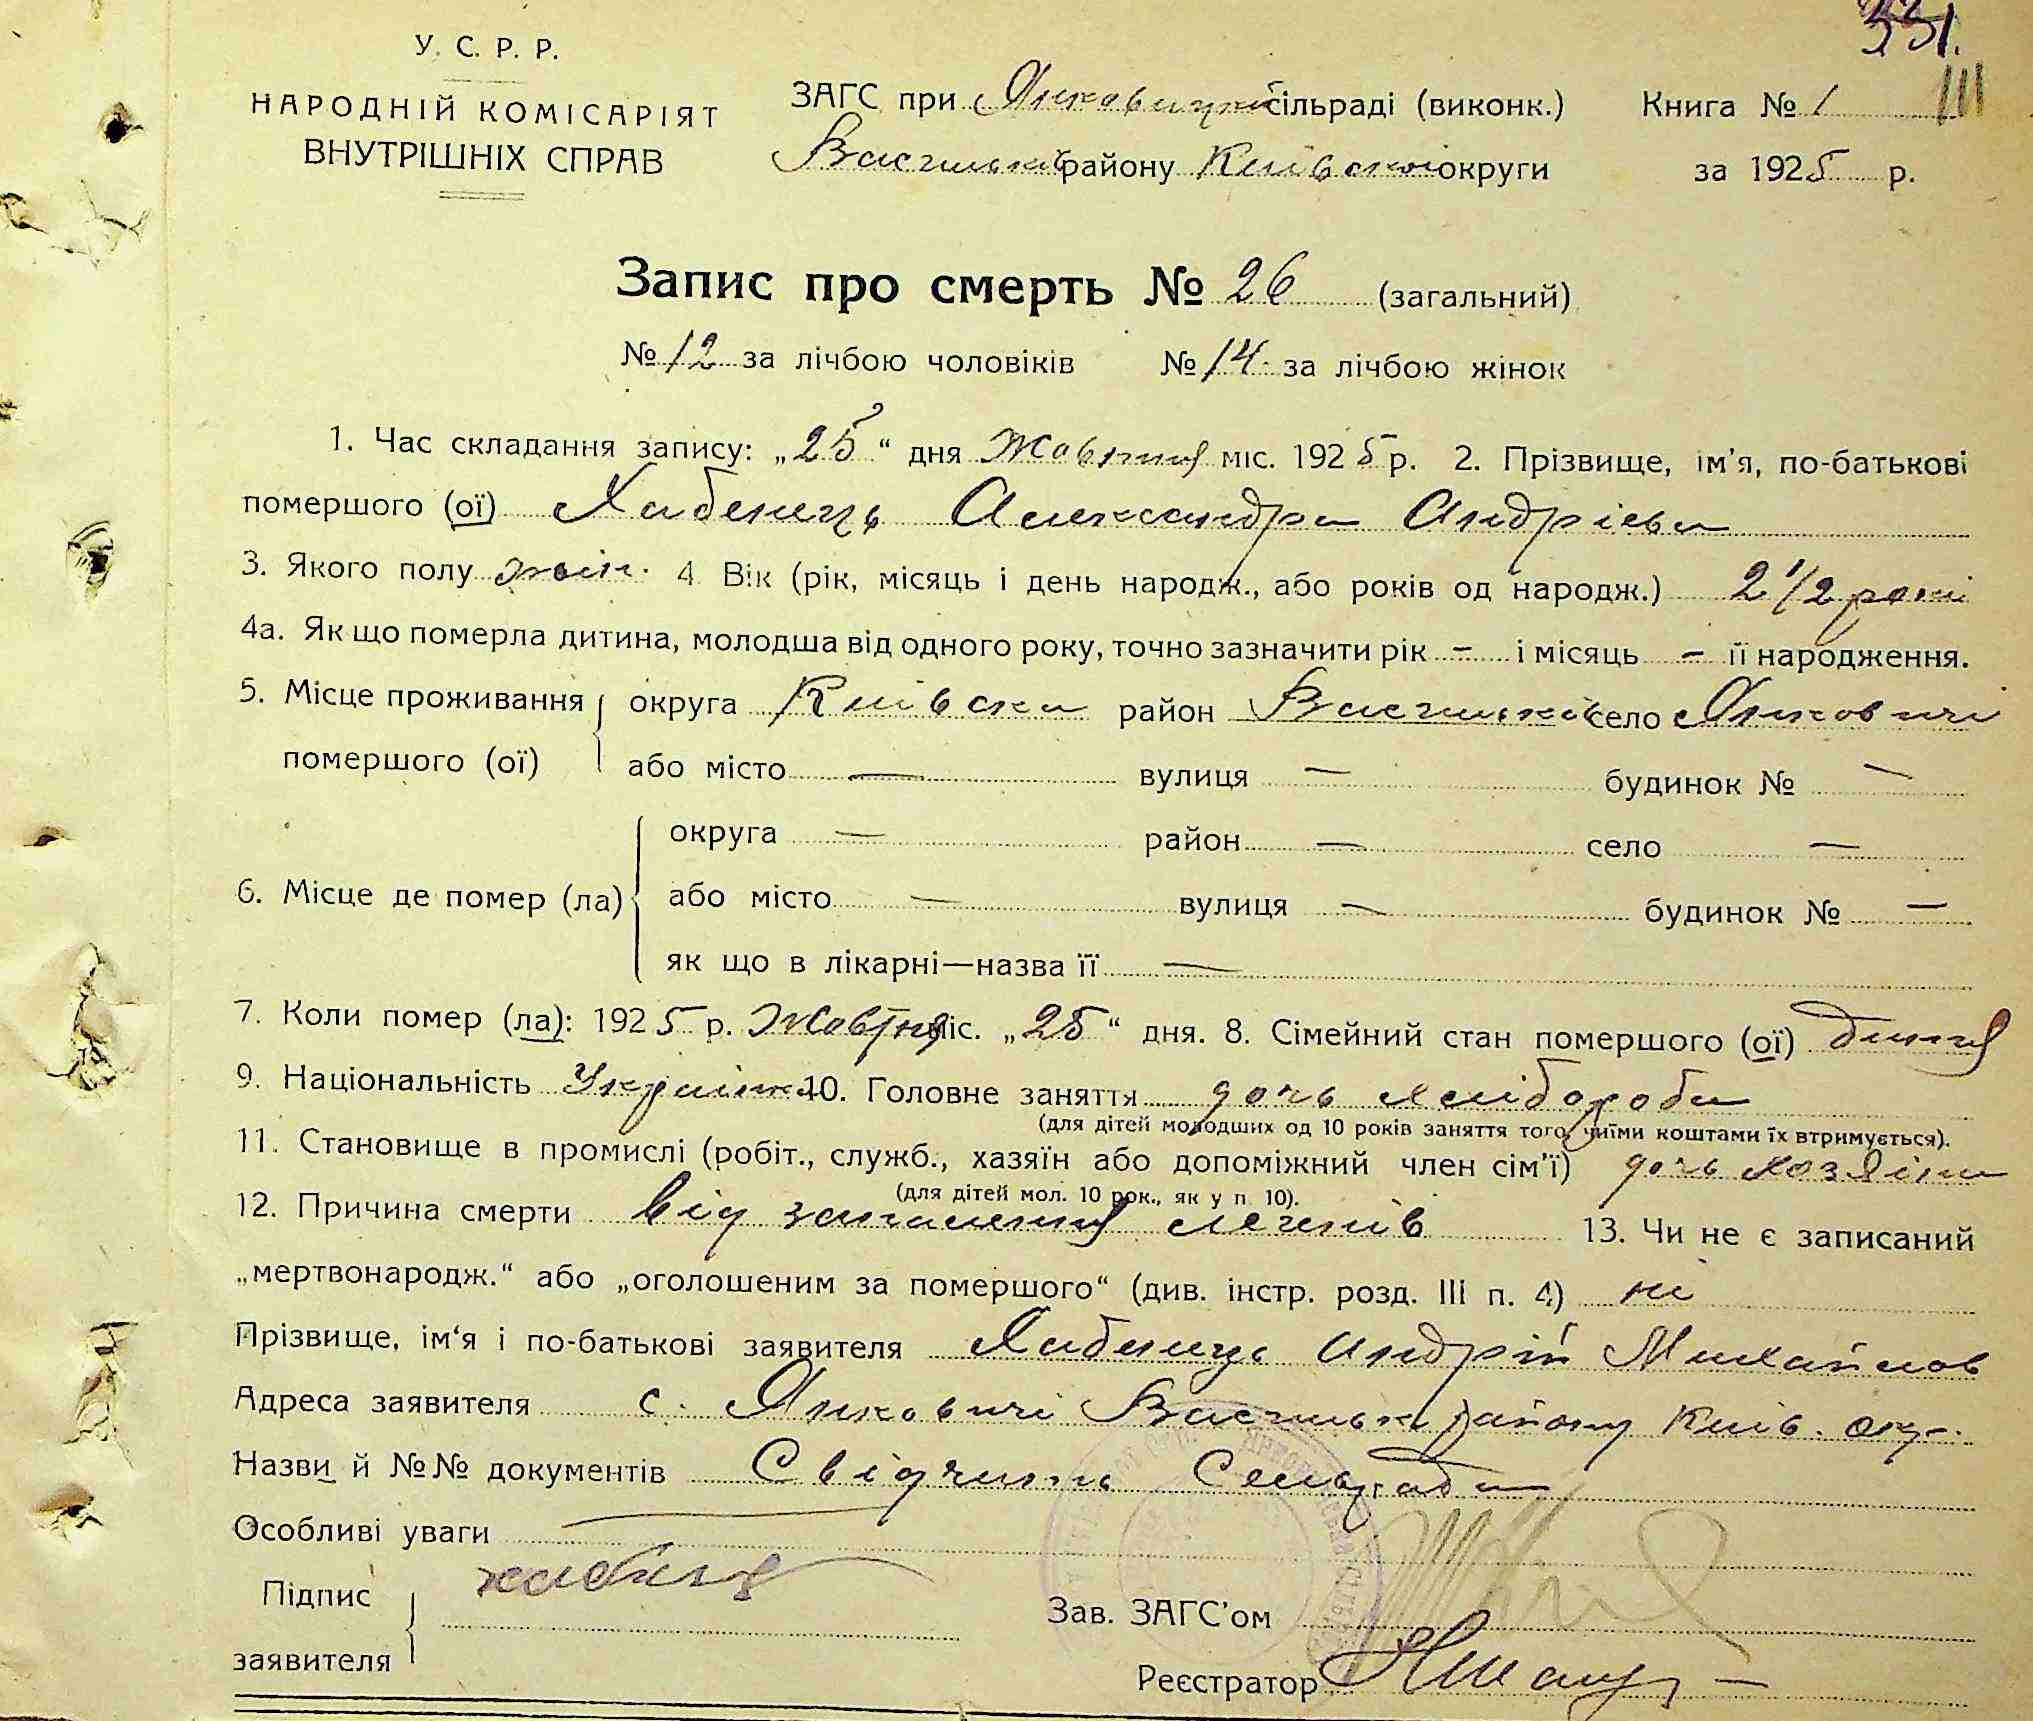 331.
У. С. Р. Р.
НАРОДНІЙ КОМІСАРІЯТ
ВНУТРІШНІХ СПРАВ
ЗАГС при Янковицкій сільраді (виконк.) Книга № 1 III
Васильків району Київської округи за 1925 р.
Запис про смерть № 26 (загальний)
№ 12 за лічбою чоловіків № 14 за лічбою жінок
1. Час складання запису: „25“ дня Жовтня міс. 1925 р. 2. Прізвище, ім'я, по-батькові
помершого (ої) Хабенець Александра Андрієва
3. Якого полу жін. 4 Вік (рік, місяць і день народж., або років од народж.) 2 1/2 роки
4а. Як що померла дитина, молодша від одного року, точно зазначити рік – і місяць – її народження.
5. Місце проживання округа Київска район Васильків село Янковичі
помершого (ої) або місто — вулиця — будинок № —
округа — район — село —
6. Місце де помер (ла) або місто — вулиця — будинок № —
як що в лікарні—назва її —
7. Коли помер (ла): 1925 р. Жовтня міс. „25“ дня. 8. Сімейний стан помершого (ої) дитя
9. Національність Україн. 10. Головне заняття дочь хлібороба
(для дітей молодших од 10 років заняття того, чиїми коштами їх втримується).
11. Становище в промислі (робіт., служб., хазяїн або допоміжний член сім'ї) дочь хозяїна
(для дітей мол. 10 рок., як у п. 10).
12. Причина смерти від запалення легенів 13. Чи не є записаний
„мертвонародж.“ або „оголошеним за помершого“ (див. інстр. розд. III п. 4) ні
Прізвище, ім‘я і по-батькові заявителя Хабенець Андрій Михайлов
Адреса заявителя с. Янковичі Васильк району Київ. окр.
Назви й №№ документів Свідчить Сельрада
Особливі уваги —
Підпис
заявителя
Зав. ЗАГС'ом
Реєстратор